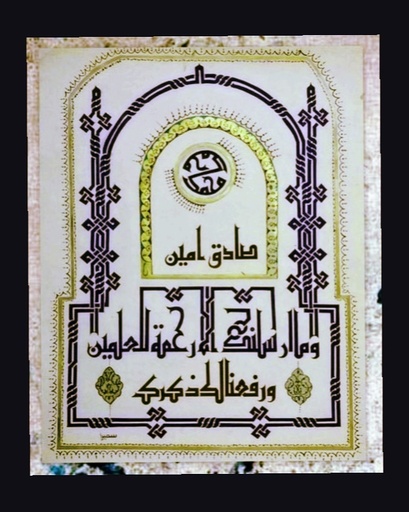 صادق امين
وما ارسلنك الا رحمة للعلمين
ورفعنا لك ذكرك